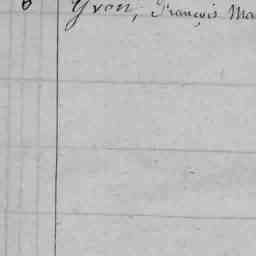 6 Yvon, François Ma